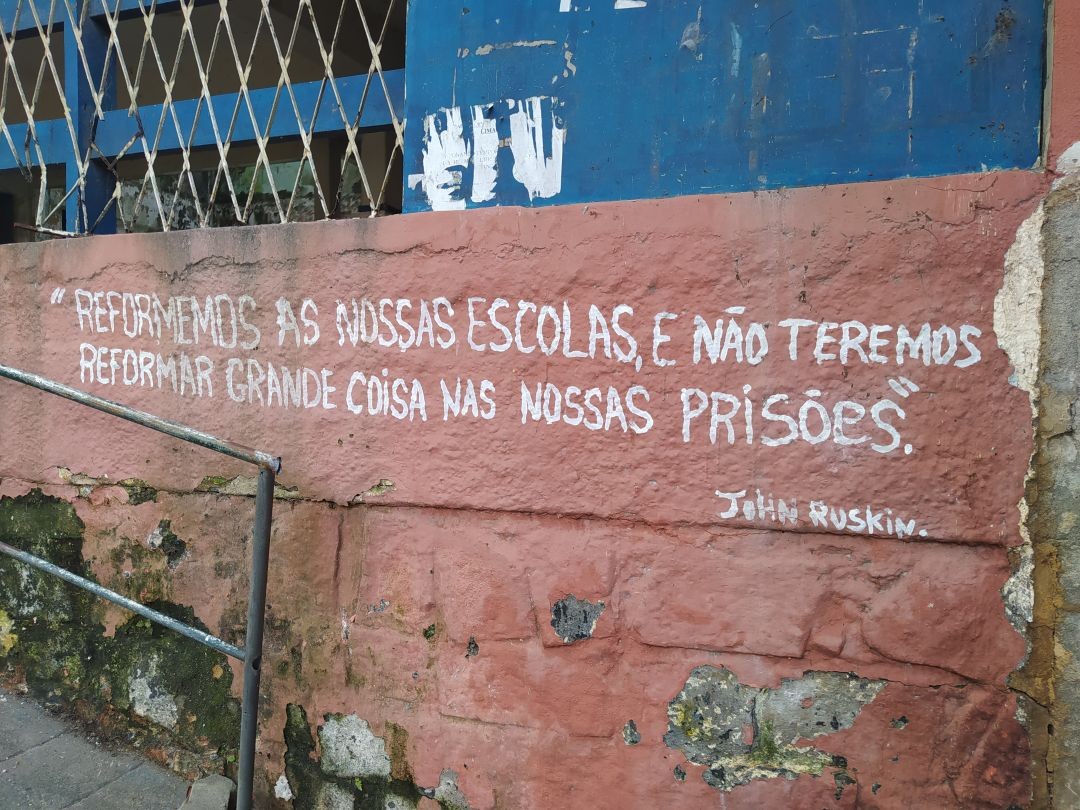 "REFORMEMOS AS NOSSAS ESCOLAS, E NÃO TEREMOS
REFORMAR GRANDE COISA NAS NOSSAS PRISÕES".
JOHN RUSKIN.